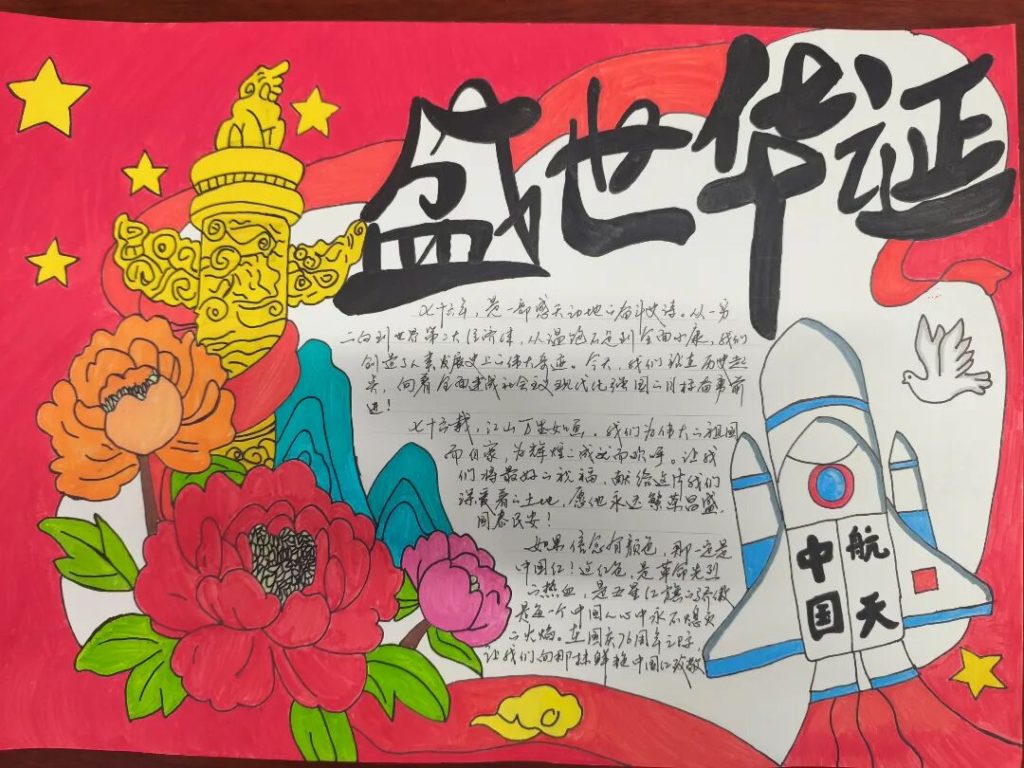 盛世华证
七十六年,是一部感天动地的奋斗史诗。从一穷
二白到世界第二大经济体,从温饱不足到全面小康,我们
创造了人类发展史上的伟大奇迹。今天,我们站在历史起
点,向着全面建成社会主义现代化强国的目标奋勇前
进!
七十六载,江山万里如画。我们为伟大的祖国
而自豪,为辉煌的成就而欢呼。让我
们将最好的祝福,献给这片我们
深爱着的土地,愿她永远繁荣昌盛,
国泰民安!
如果信念有颜色,那一定是
中国红!这红色,是革命先烈
的热血,是五星红旗的骄傲
是每一个中国人心中永不熄灭
的火焰。在国庆76周年之际,
让我们向那抹鲜艳中国红致敬
中国
航天